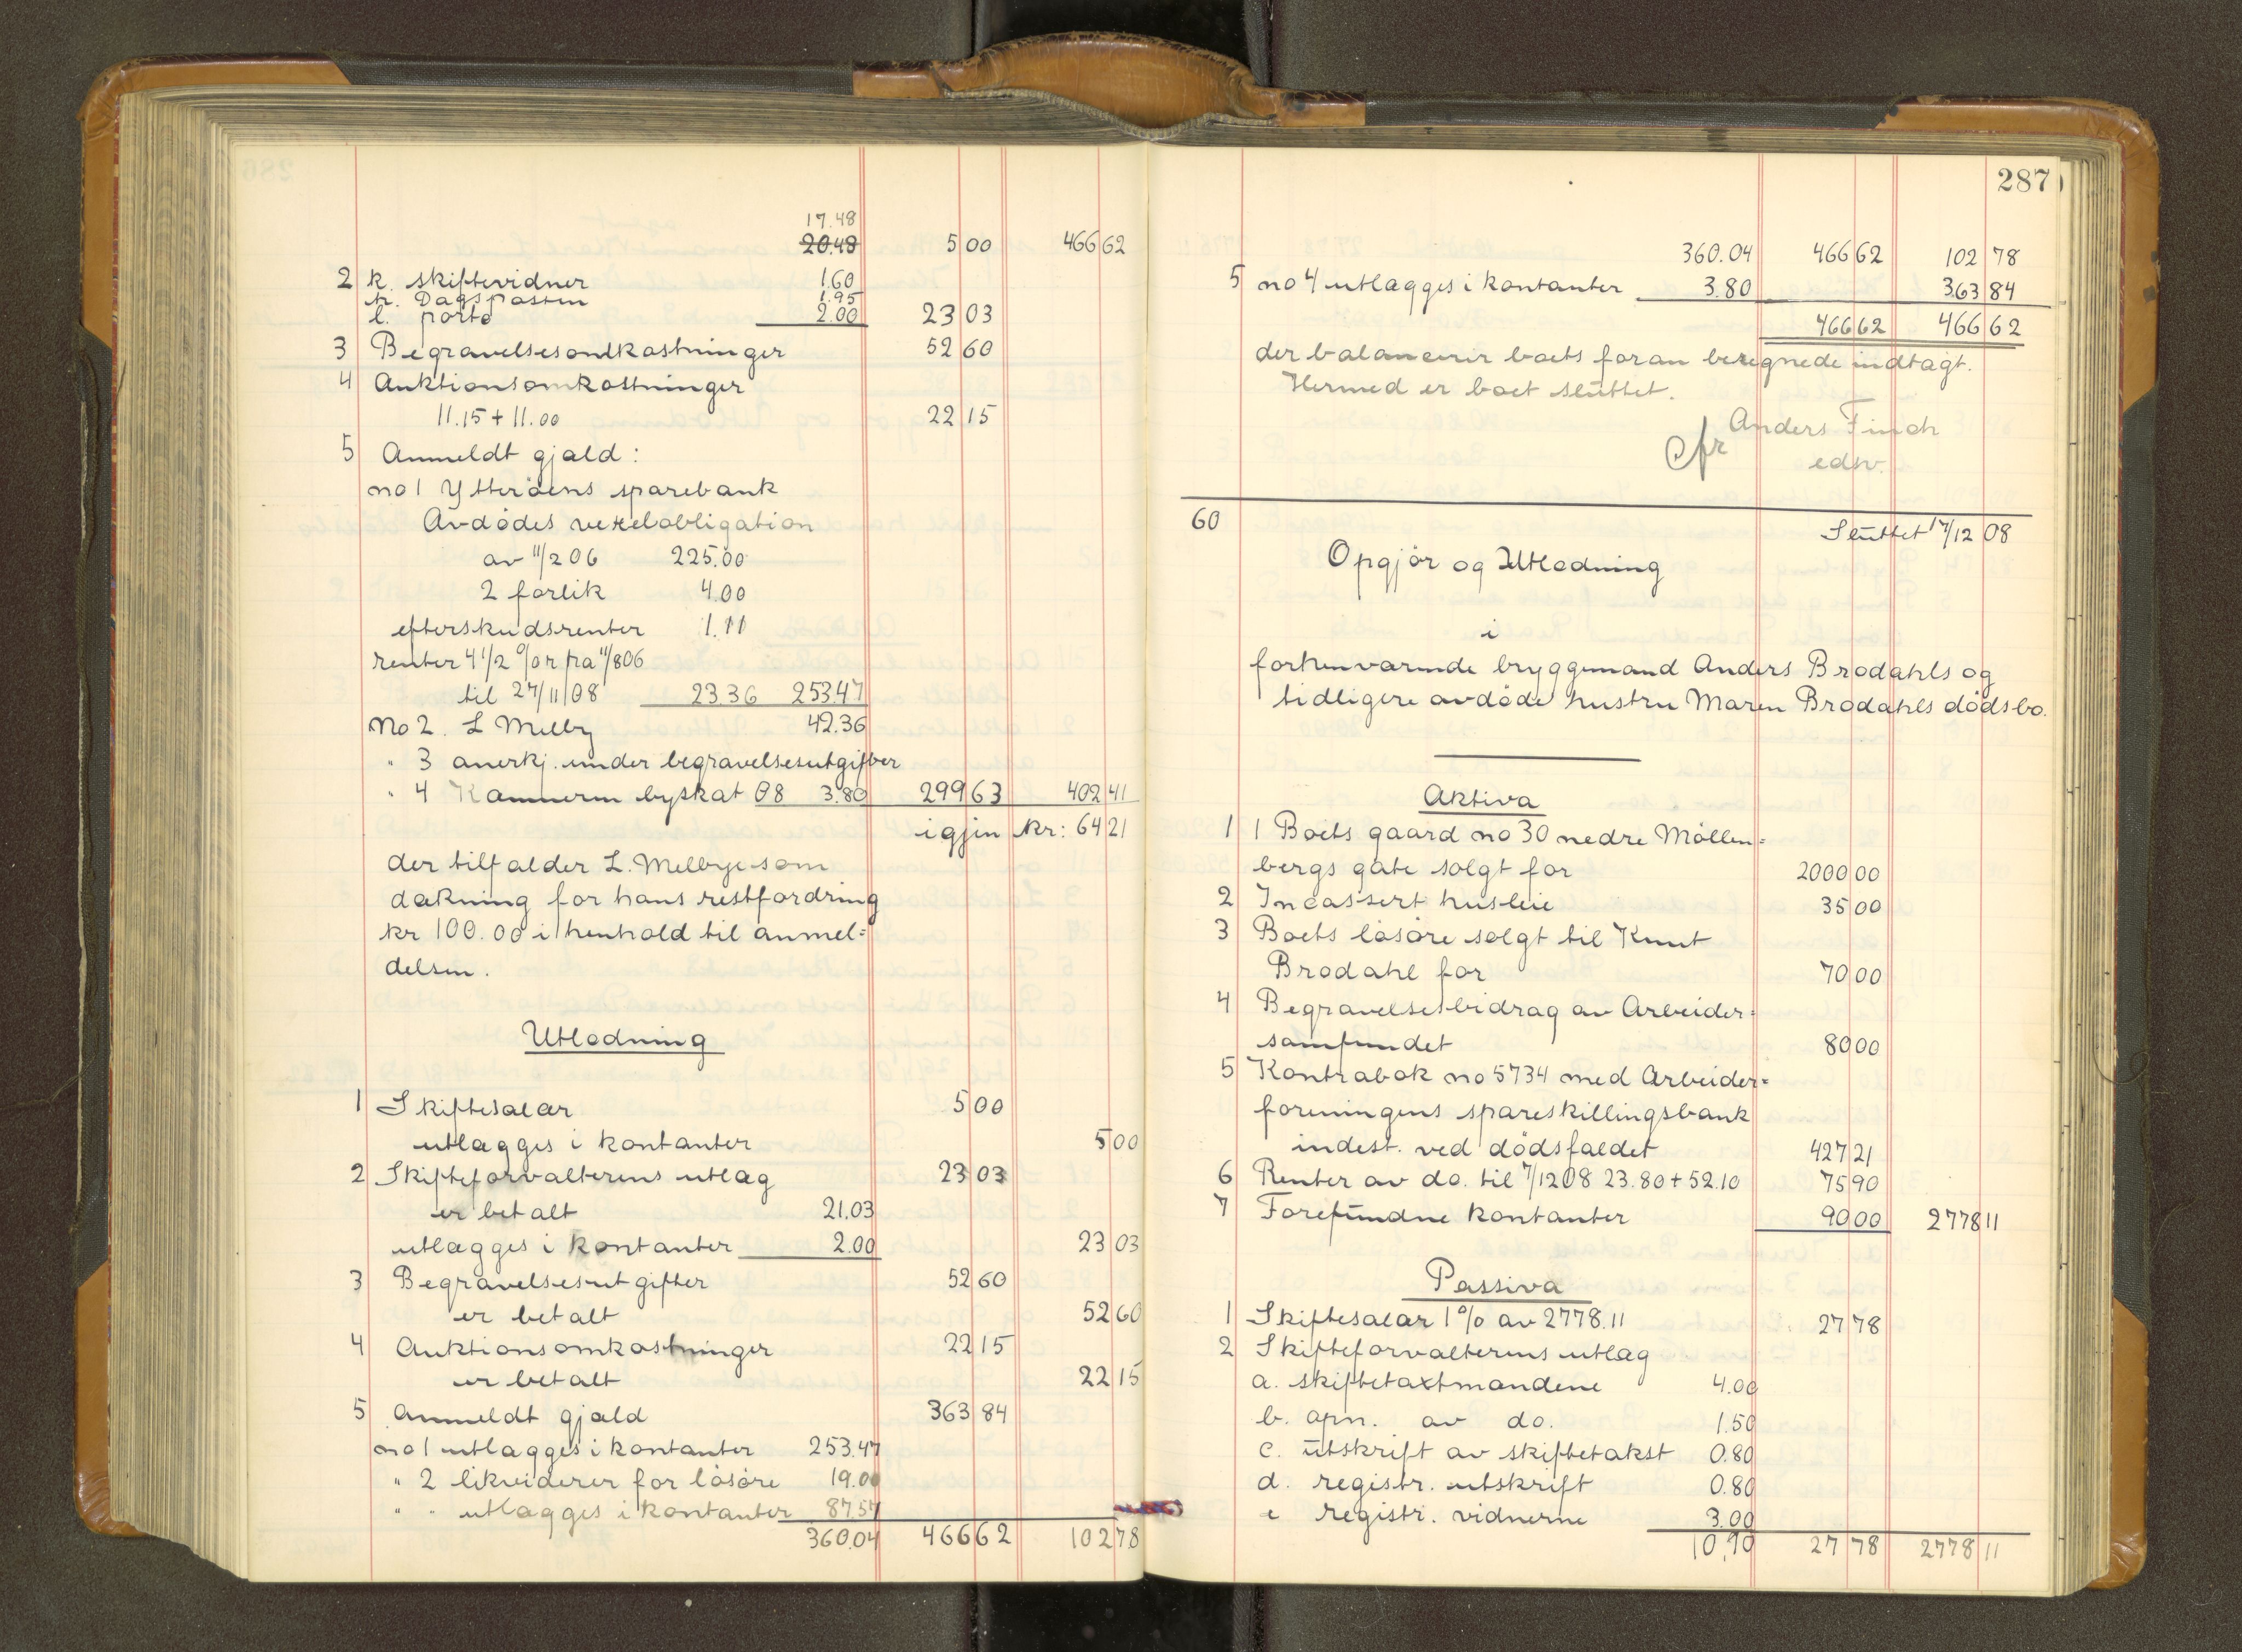 17.48
20.48 5 00 466 62
2 k. skiftevidner 1.60
h. Dagsposten 1.95
l. porto 2.00 23 03
3 Begravelsesomkostninger 52 60
4 Auktionsomkostninger
11.15 + 11.00 22 15
5 Anmeldt gjæld:
no 1 Ytterøens sparebank
Avdødes vexelobligation
av 11/2 06 225.00
2 forlik 4.00
efterskudsrenter 1.11
renter 4 1/2 % fra 11/8 06
til 27/11 08 23.36 253.47
No 2. L Melby 42.36
" 3 anerkj. under begravelsesutgifter
" 4 Kæmneren byskat 08 3.80 299 63 402 41
igjen kr: 64 21
der tilfalder L. Melbye som
dækning for hans restfordring
kr 100.00 i henhold til anmel=
delsen.
Utlodning
1 Skiftesalær 5 00
utlægges i kontanter 5 00
2 Skifteforvalterens utlæg 23 03
er betalt 21.03
utlægges i kontanter 2.00 23 03
3 Begravelsesutgifter 52 60
er betalt 52 60
4 Auktionsomkostninger 22 15
er betalt 22 15
5 Anmeldt gjæld 363 84
no 1 utlægges i kontanter 253.47
" 2 likviderer for løsøre 19.00
" " utlægges i kontanter 87.57
360.04 466 62 102 78
287
360.04 466 62 102 78
5 no 4 utlægges i kontanter 3.80 363 84
466 62 466 62
der balanserer boets foran beregnede indtægt.
Hermed er boet sluttet.
Anders Finch
cfr edsv.
60 Sluttet 17/12 08
Opgjør og Utlodning
i
forhenværende bryggemand Anders Brodahls og
tidligere avdøde hustru Maren Brodahls dødsbo.
Aktiva
1 1 Boets gaard no 30 nedre Møllen=
bergs gate solgt for 2000 00
2 Incassert husleie 35 00
3 Boets løsøre solgt til Knut
Brodahl for 70 00
4 Begravelsesbidrag av Arbeider=
samfundet 80 00
5 Kontrabok no 5734 med Arbeider=
foreningens spareskillingsbank
indest. ved dødsfaldet 427 21
6 Renter av do. til 7/12 08 23.80 + 52.10 75 90
7 Forefundne kontanter 90 00 2778 11
Passiva
1 Skiftesalær 1 % av 2778.11 27 78
2 Skifteforvalterens utlæg
a. skiftetaxtmændene 4.00
b. opn. av do. 1.50
c. utskrift av skiftetakst 0.80
d. registr. utskrift 0.80
e registr. vidnerne 3.00
10.90 27 78 2778 11